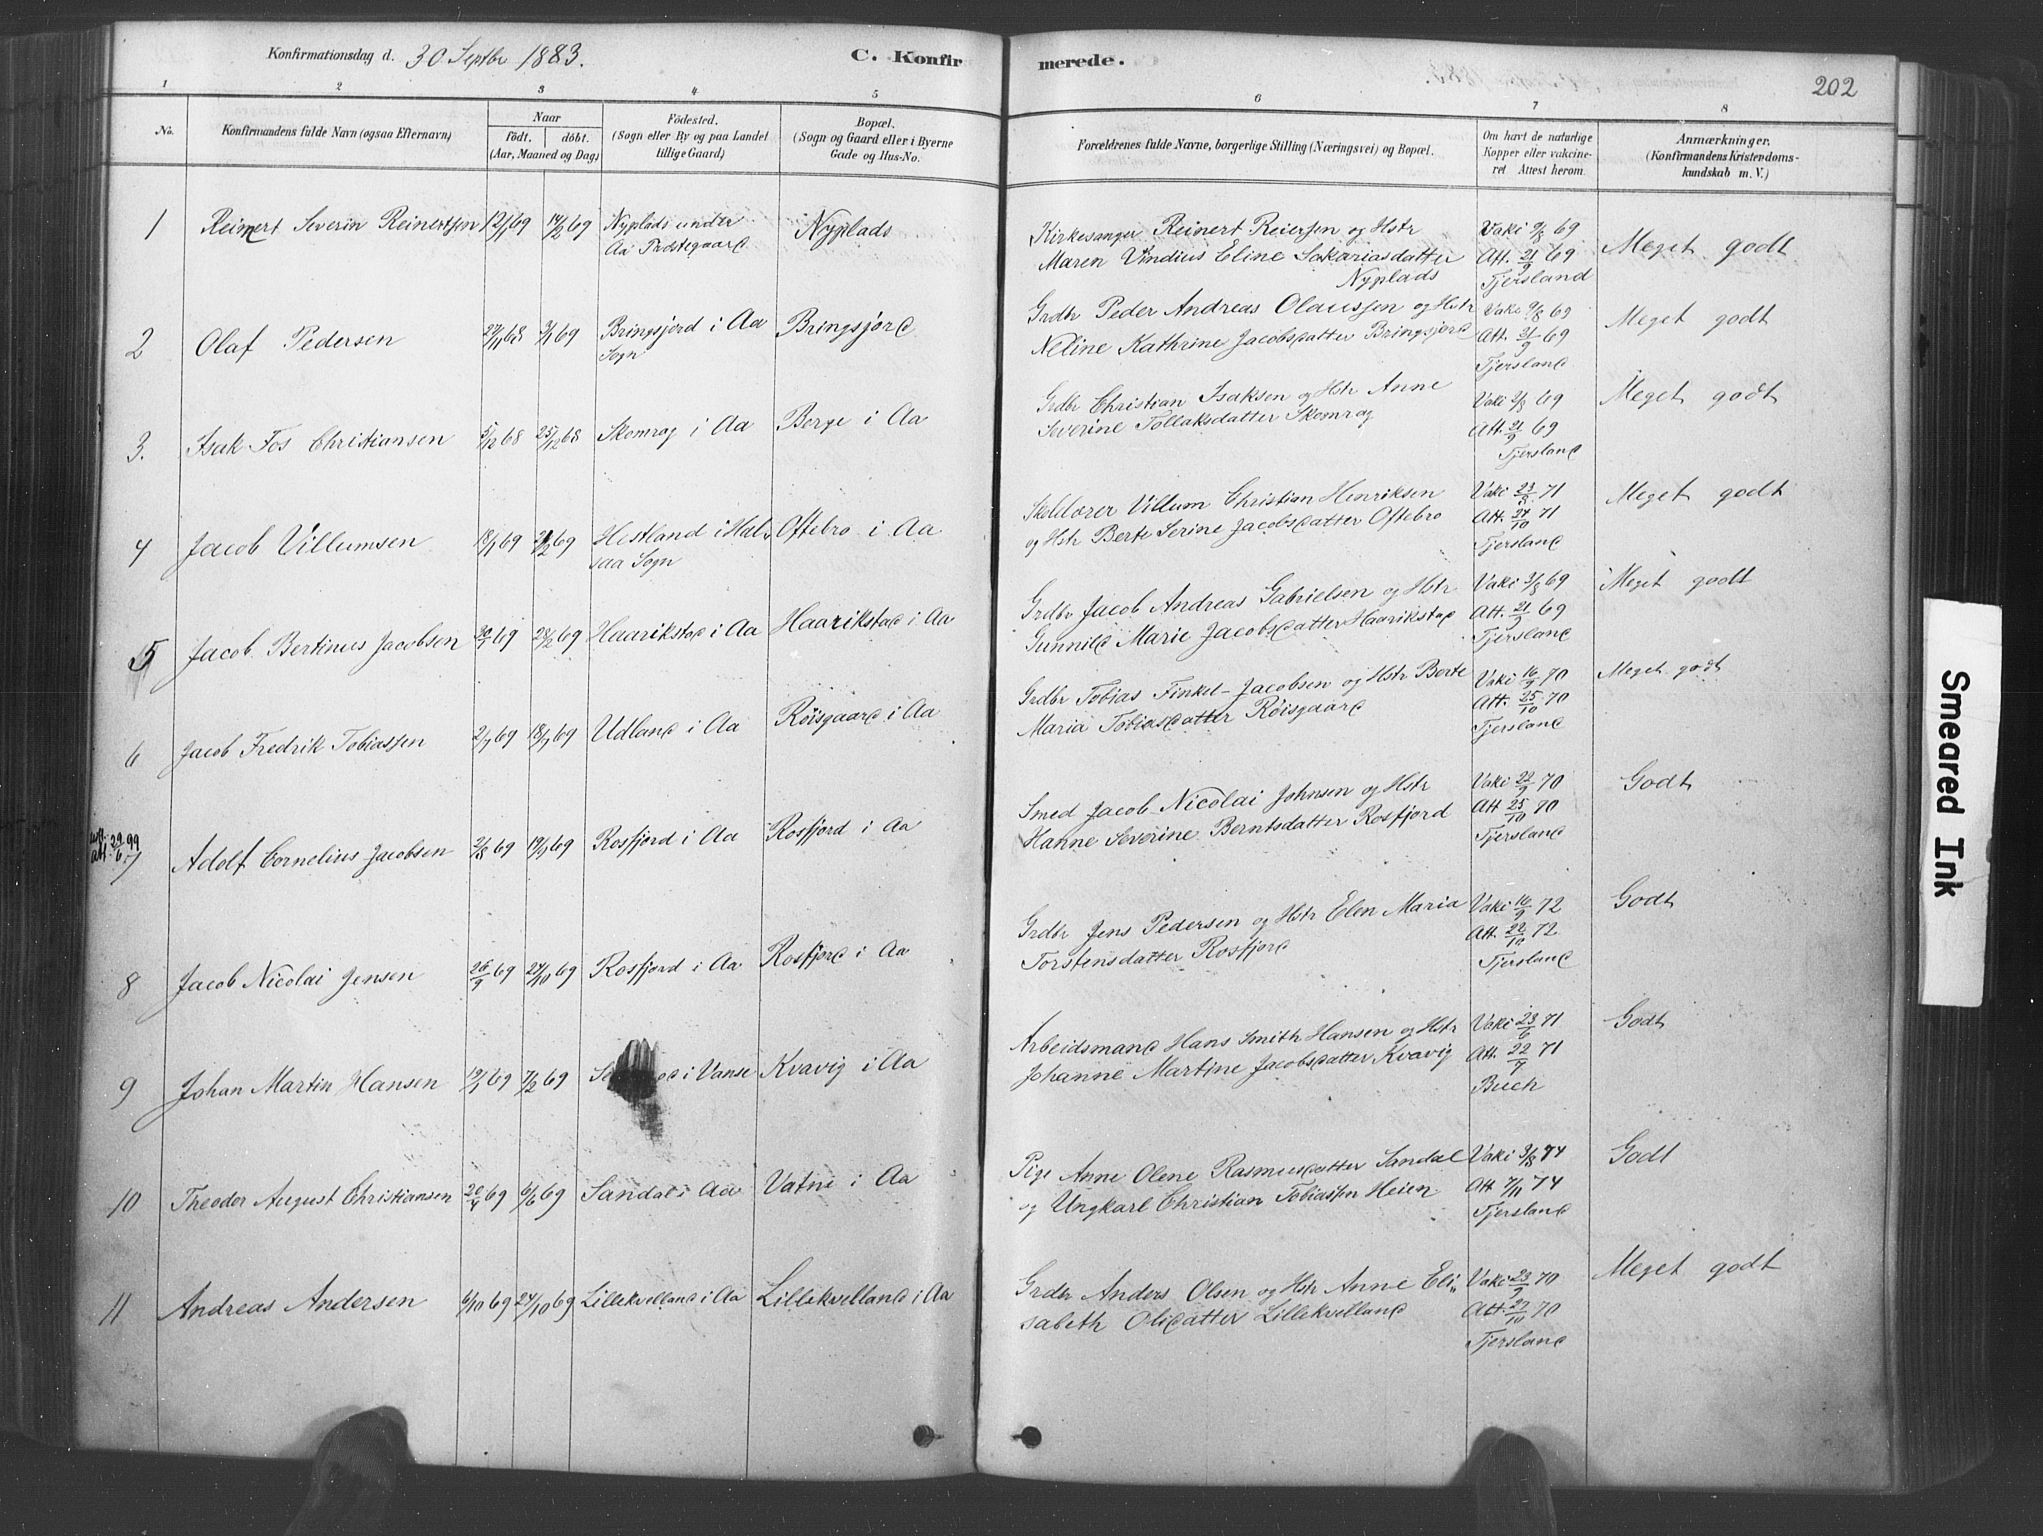 Konfirmationsdag d. 30 Septbr 1883.
C. Konfirmerede.
202
1 2 3 4 5 6 7 8
No.
Konfirmandens fulde Navn (ogsaa Efternavn)
Naar
födt. döbt.
(Aar, Maaned og Dag)
Födested.
(Sogn eller By og paa Landet
tillige Gaard)
Bopæl.
(Sogn og Gaard eller i Byerne
Gade og Hus-No.
Forældrenes fulde Navne, borgerlige Stilling (Næringsvei) og Bopæl.
Om havt de naturlige
Kopper eller vakcine-
ret Attest herom.
Anmærkninger.
(Konfirmandens Kristendoms-
kundskab m. V.)
1 Reinert Severin Reinertsen 12/1 69 14/2 69 Nyplads under Nyplads Kirkesanger Reinert Reiersen og Hstr Vaki 9/8 69 Meget godt
Aa Præstegaard Maren Vindius Eline Sakariasdatter Att. 21/9 69
Nyplads Tjersland
2 Olaf Pedersen 27/11 68 3/1 69 Bringsjord i Aa Bringsjord Grdbr Peder Andreas Olaussen og Hstr Vaki 9/8 69 Meget godt
Sogn Neline Kathrine Jacobsdatter Bringsjord Att. 21/9 69
Tjersland
3. Isak Fos Christiansen 5/12 68 25/12 68 Skomrag i Aa Berge i Aa Grdbr Christian Isaksen og Hstr Anne Vaki 2/8 69 Meget godt
Severine Tollaksdatter Skomrag Att. 21/9 69
Tjersland
4 Jacob Villumsen 18/1 69 21/2 69 Hestland i Hals Oftebro i Aa Skolelærer Villum Christian Henriksen Vaki 23/8 71 Meget godt
saa Sogn og Hstr Berte Serine Jacobsdatter Oftebro Att. 27/10 71
Tjersland
5 Jacob Bertinus Jacobsen 69 28/2 69 Haarikstad i Aa Haarikstad i Aa Grdbr Jacob Andreas Gabrielsen og Hstr Vaki 3/8 69 Meget godt
Gunnild Marie Jacobsdatter Haarikstad Att. 21/9 69
Tjersland
6 Jacob Fredrik Tobiassen 2/7 69 18/7 69 Udland i Aa Röisgaard i Aa Grdbr Tobias Finkel-Jacobsen og Hstr Berte Vaki 16/9 70 Meget godt
Maria Tobiasdatter Röisgaard Att. 25/10 70
Tjersland
att. 29/6 99
7 Adolf Cornelius Jacobsen 2/8 69 19/9 69 Rosfjord i Aa Rosfjord i Aa Smed Jacob Nicolai Johnsen og Hstr Vaki 22/9 70 Godt
Hanne Severine Berntsdatter Rosfjord Att 25/10 70
Tjersland
8 Jacob Nicolai Jensen 26/9 69 24/10 69 Rosfjord i Aa Rosfjord i Aa Grdbr Jens Pedersen og Hstr Elen Maria Vaki 16/9 72 Godt
Torstensdatter Rosfjord Att. 22/10 72
Tjersland
9 Johan Martin Hansen 12/1 69 7/2 69 i Vanse Kvavig i Aa Arbeidsmand Hans Smith Hansen og Hstr Vaki 23/6 71 Godt
Johanne Martine Jacobsdatter Kvavig Att. 22/9 71
Buch
10 Theodor August Christiansen 20/4 69 6/6 69 Sandal i Aa Vatne i Aa Pige Anne Olene Rasmusdatter Sandal Vaki 3/8 74 Godt
og Ungkarl Christian Tobiassen Heien Att 7/11 74
Tjersland
11 Andreas Andersen 6/10 69 24/10 69 Lillekvelland i Aa Lillekvelland i Aa Grdbr Anders Olsen og Hstr Anne Eli- Vaki 23/9 70 Meget godt
sabeth Olisdatter Lillekvelland Att 27/10 70
Tjersland
Smeared Ink